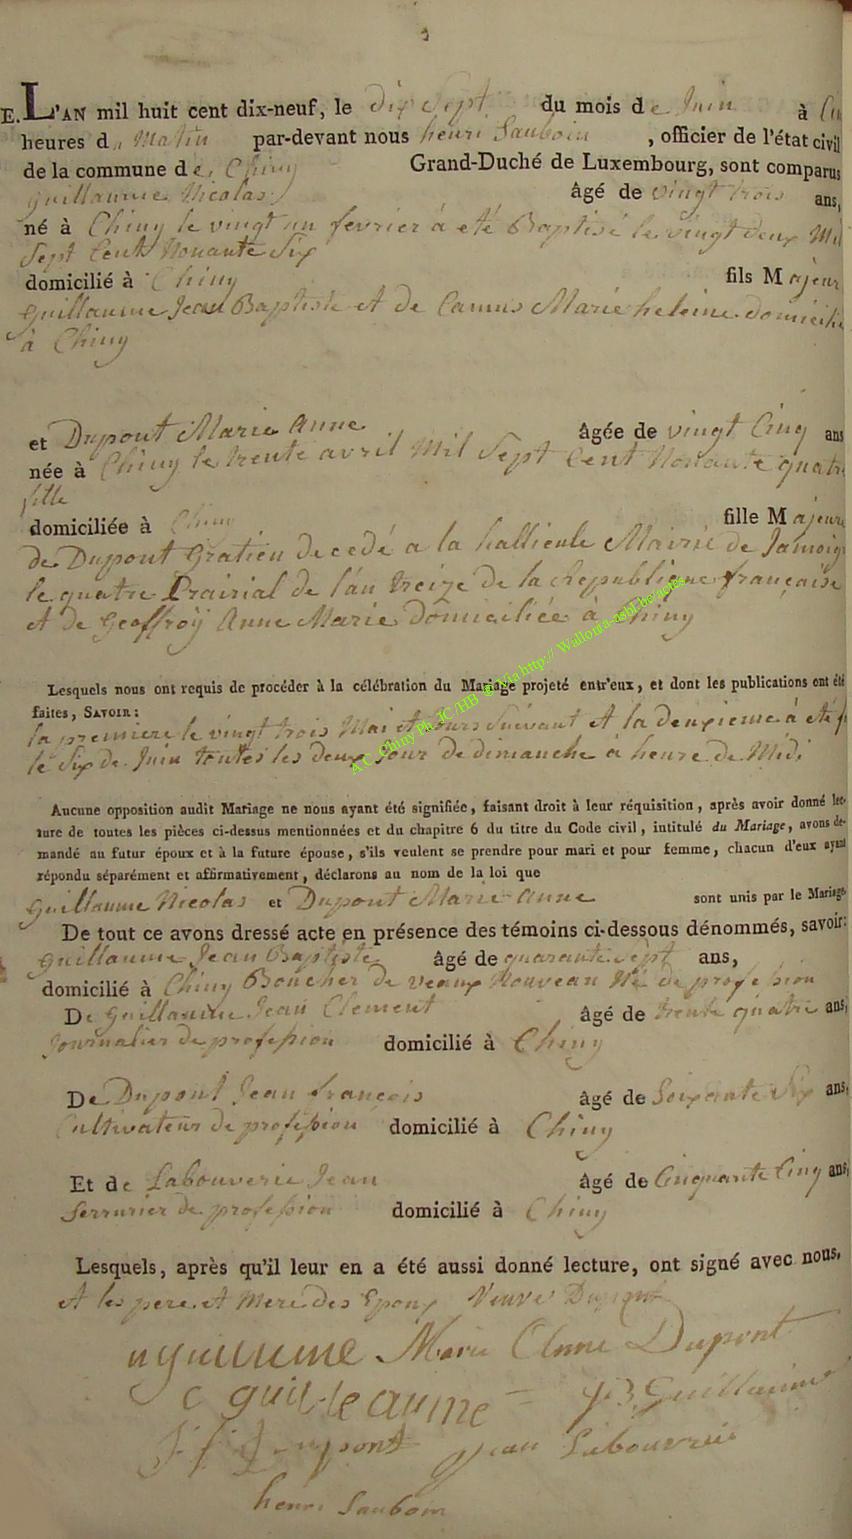 E. L'AN mil huit cent dix-neuf, le dix sept du mois de Juin à
heures du Matin par-devant nous henri Sauboin, officier de l'état civil
de la commune de Chiny Grand-Duché de Luxembourg, sont comparus
Guillaume Nicolas âgé de vingt trois ans,
né à Chiny le vingt un fevrier a eté Baptisé le vingt deux Mil
Sept Cent Nonante Six
domicilié à Chiny fils Majeur
Guillaume Jean Baptiste et de Camus Marie helene domicilié
à Chiny
et Dupont Marie Anne âgée de vingt Cinq ans
née à Chiny le trente avril Mil Sept Cent Nonante quatre
fille
domiciliée à Chiny fille Majeure
de Dupont Gratien decedé a la hallieule Mairie de Jamoigne
le quatre Prairial de l'an treize de la Republique française
et de Geoffroÿ Anne Marie domiciliée à Chiny
Lesquels nous ont requis de procéder à la célébration du Mariage projeté entr'eux, et dont les publications ont été
faites, SAVOIR:
la premiere le vingt trois Mai et Suivant et la deuxieme a été
le Six de Juin toutes les deux jour de dimanche à heure de Midi
Aucune opposition audit Mariage ne nous ayant été signifiée, faisant droit à leur réquisition, après avoir donné lec-
ture de toutes les pièces ci-dessus mentionnées et du chapitre 6 du titre du Code civil, intitulé du Mariage, avons de-
mandé au futur époux et à la future épouse, s'ils veulent se prendre pour mari et pour femme, chacun d'eux ayant
répondu séparément et affirmativement, déclarons au nom de la loi que
Guillaume Nicolas et Dupont Marie Anne sont unis par le Mariage.
De tout ce avons dressé acte en présence des témoins ci-dessous dénommés, savoir:
Guillaume Jean Baptiste âgé de quarante sept ans,
domicilié à Chiny Boucher de veaux Nouveau Né de profession
De Guillaume Jean Clement âgé de trente quatre ans,
Journalier de profession domicilié à Chiny
De Dupont Jean françois âgé de Soixante Six ans,
Cultivateur de profession domicilié à Chiny
Et de Labouverie Jean âgé de Cinquante Cinq ans,
Serrurier de profession domicilié à Chiny
Lesquels, après qu'il leur en a été aussi donné lecture, ont signé avec nous,
et les pere et Mere des Epoux Veuve Dupont
n guillaume Marie Anne Dupont
c guilleaume JB Guillaume
J f Dupont Jean Labouverie
henri Sauboin
A.C. Chiny Ph. JC /HB © Ma http:// Wallonia-asbl.be/actes